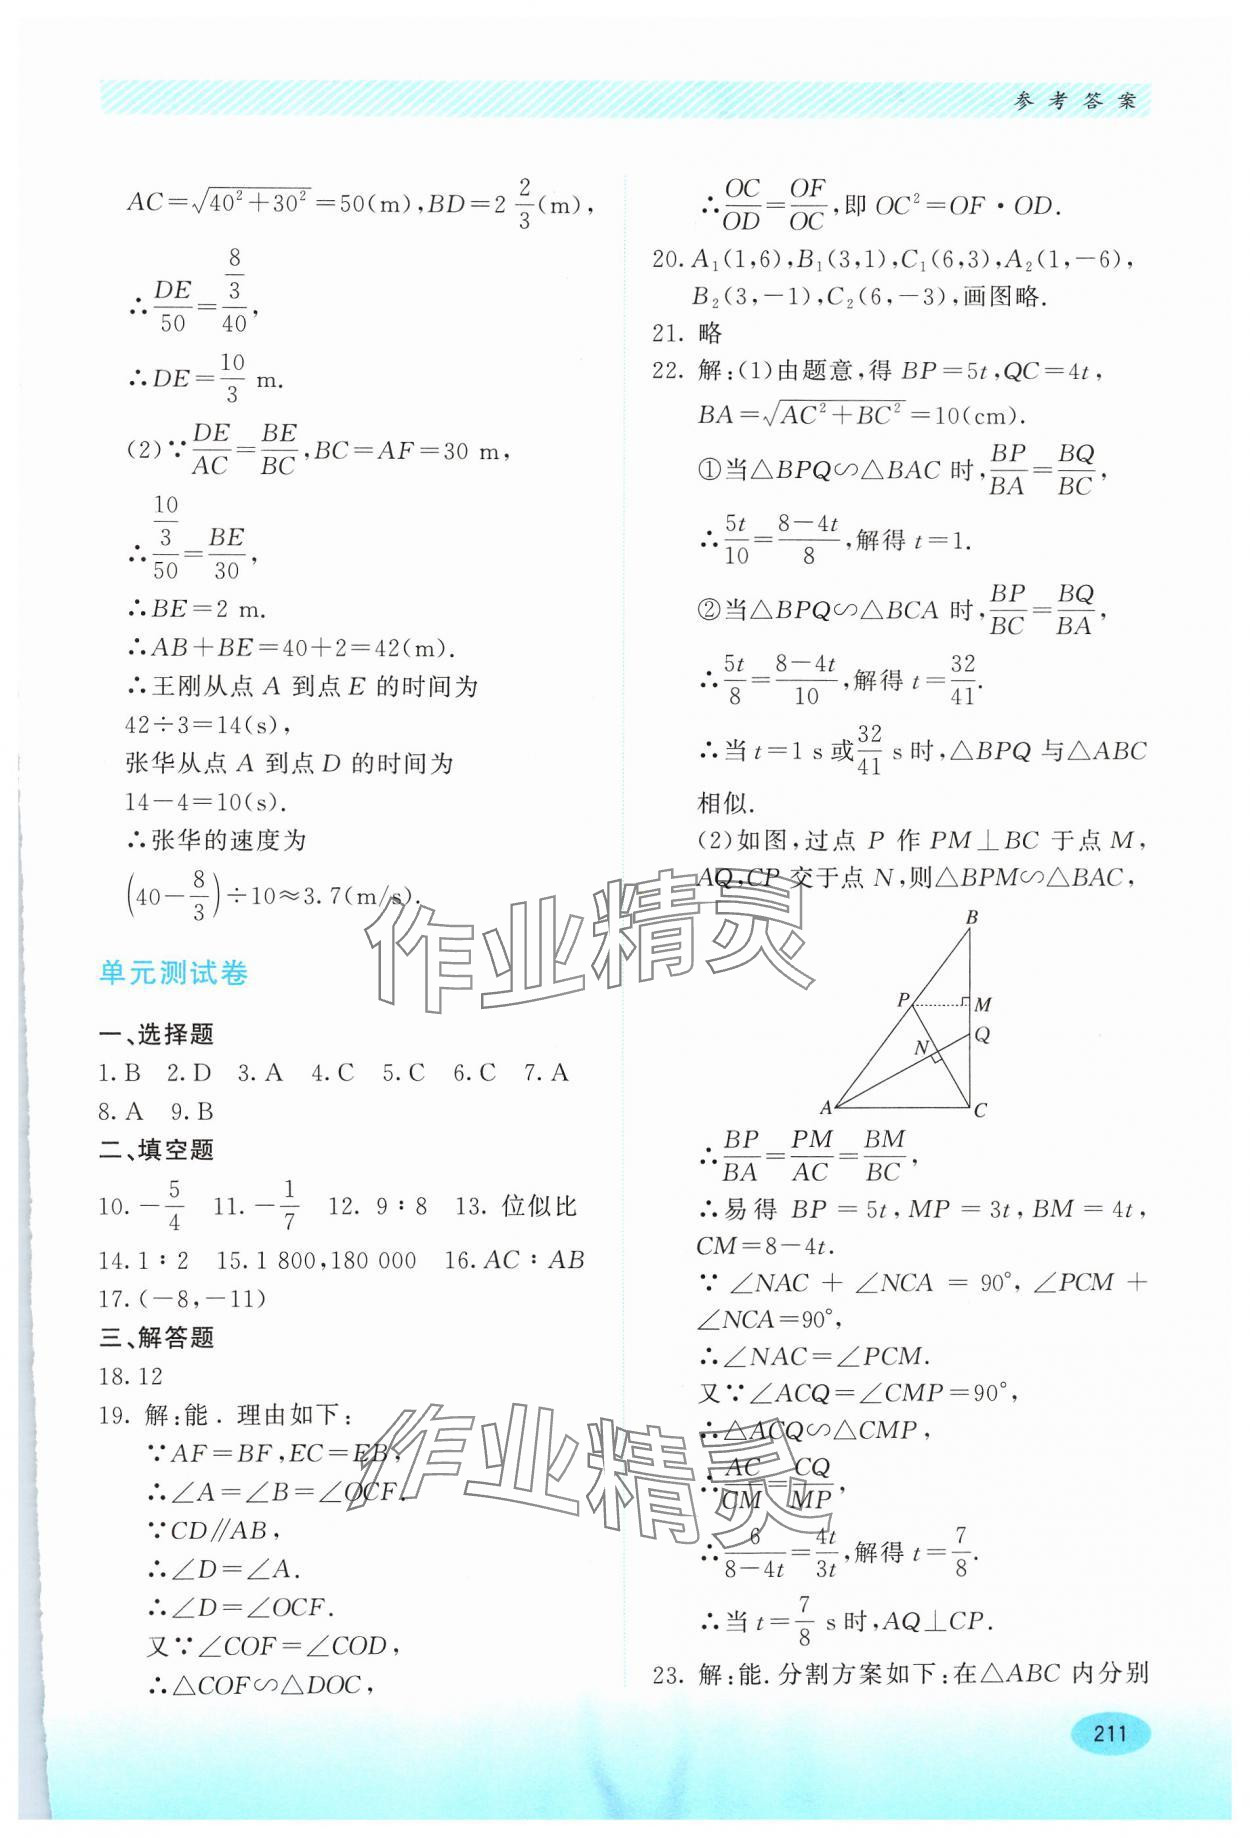 参考答案
AC=√(40²+30²)=50(m),BD=2 2/3(m),
∴DE/50=(8/3)/40,
∴DE=10/3 m.
(2)∵DE/AC=BE/BC,BC=AF=30 m,
∴(10/3)/50=BE/30,
∴BE=2 m.
∴AB+BE=40+2=42(m).
∴王刚从点 A 到点 E 的时间为
42÷3=14(s),
张华从点 A 到点 D 的时间为
14-4=10(s).
∴张华的速度为
(40-8/3)÷10≈3.7(m/s).
单元测试卷
一、选择题
1.B 2.D 3.A 4.C 5.C 6.C 7.A
8.A 9.B
二、填空题
10.-5/4 11.-1/7 12.9∶8 13.位似比
14.1∶2 15.1 800,180 000 16.AC∶AB
17.(-8,-11)
三、解答题
18.12
19.解:能.理由如下:
∵AF=BF,EC=EB,
∴∠A=∠B=∠OCF.
∵CD∥AB,
∴∠D=∠A.
∴∠D=∠OCF.
又∵∠COF=∠COD,
∴△COF∽△DOC,
∴OC/OD=OF/OC,即 OC²=OF·OD.
20.A₁(1,6),B₁(3,1),C₁(6,3),A₂(1,-6),
B₂(3,-1),C₂(6,-3),画图略.
21.略
22.解:(1)由题意,得 BP=5t,QC=4t,
BA=√(AC²+BC²)=10(cm).
①当△BPQ∽△BAC 时,BP/BA=BQ/BC,
∴5t/10=(8-4t)/8,解得 t=1.
②当△BPQ∽△BCA 时,BP/BC=BQ/BA,
∴5t/8=(8-4t)/10,解得 t=32/41.
∴当 t=1 s或32/41 s时,△BPQ 与△ABC
相似.
(2)如图,过点 P 作 PM⊥BC 于点 M,
AQ,CP 交于点 N,则△BPM∽△BAC,
B
P
M
Q
N
A
C
∴BP/BA=PM/AC=BM/BC,
∴易得 BP=5t,MP=3t,BM=4t,
CM=8-4t.
∵∠NAC+∠NCA=90°,∠PCM+
∠NCA=90°,
∴∠NAC=∠PCM.
又∵∠ACQ=∠CMP=90°,
∴△ACQ∽△CMP,
∴AC/CM=CQ/MP,
∴6/(8-4t)=4t/3t,解得 t=7/8.
∴当 t=7/8 s时,AQ⊥CP.
23.解:能.分割方案如下:在△ABC 内分别
211
作业精灵
作业精灵